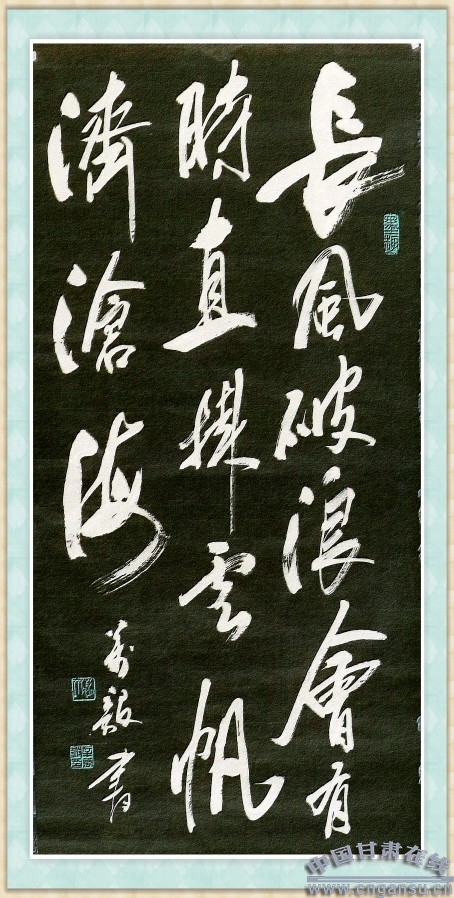 長風破浪會有
時直掛雲帆
濟滄海
書
中国甘肃在线
www.cngansu.cn